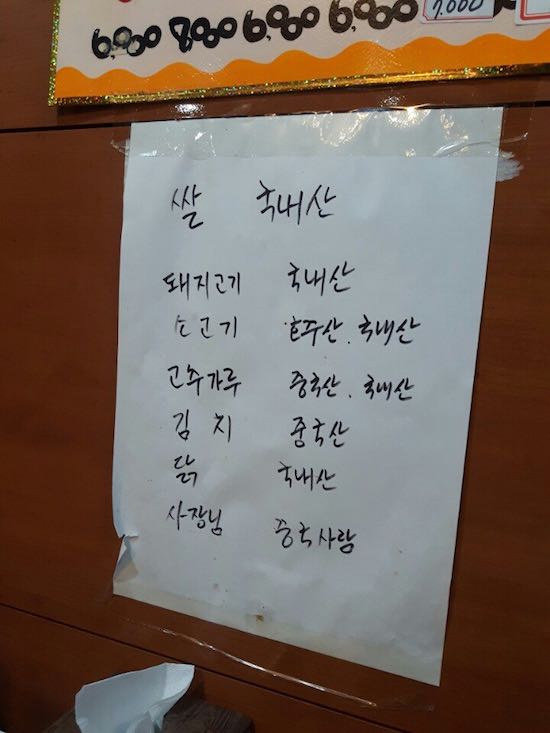 6,000 7,000 6,000 6,000 7,000
쌀 국내산
돼지고기 국내산
소고기 호주산. 국내산
고추가루 중국산. 국내산
김치 중국산
닭 국내산
사장님 중국사람